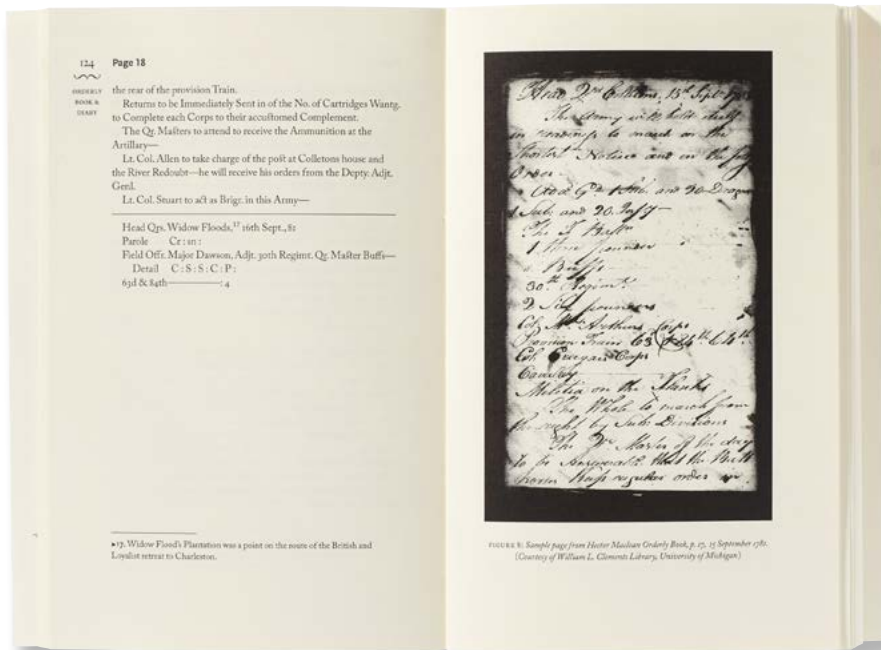 124 Page 18
ORDERLY
BOOK &
DIARY
the rear of the provision Train.
Returns to be Immediately Sent in of the No. of Cartridges Wantg.
to Complete each Corps to their accustomed Complement.
The Qr. Masters to attend to receive the Ammunition at the
Artillary—
Lt. Col. Allen to take charge of the post at Colletons house and
the River Redoubt—he will receive his orders from the Depty. Adjt.
Genl.
Lt. Col. Stuart to act as Brigr. in this Army—
Head Qrs. Widow Floods,17 16th Sept., 81
Parole Cr : sn :
Field Offr. Major Dawson, Adjt. 30th Regimt. Qr. Master Buffs—
Detail C : S : S : C : P :
63d & 84th—————: 4
▸17. Widow Flood's Plantation was a point on the route of the British and
Loyalist retreat to Charleston.
Head Qrs 15th Sept
This Army will hold itself
in readiness to march on the
Shortest Notice and in the
Order
1 Sub. and 20
The
1 three pounder
Buffs
30th Regimt.
2 Six pounders
Col. Mc Arthurs Corps
Provision Train 63d & 84th & 64th
Col. Corps
Cavalry
Militia on the Flanks
The Whole to march from
the right by Sub Divisions
The Qr. Master of the day
to be Answerable that the
horses keep regular order in
FIGURE 8: Sample page from Hector Maclean Orderly Book, p. 17, 15 September 1781.
(Courtesy of William L. Clements Library, University of Michigan)